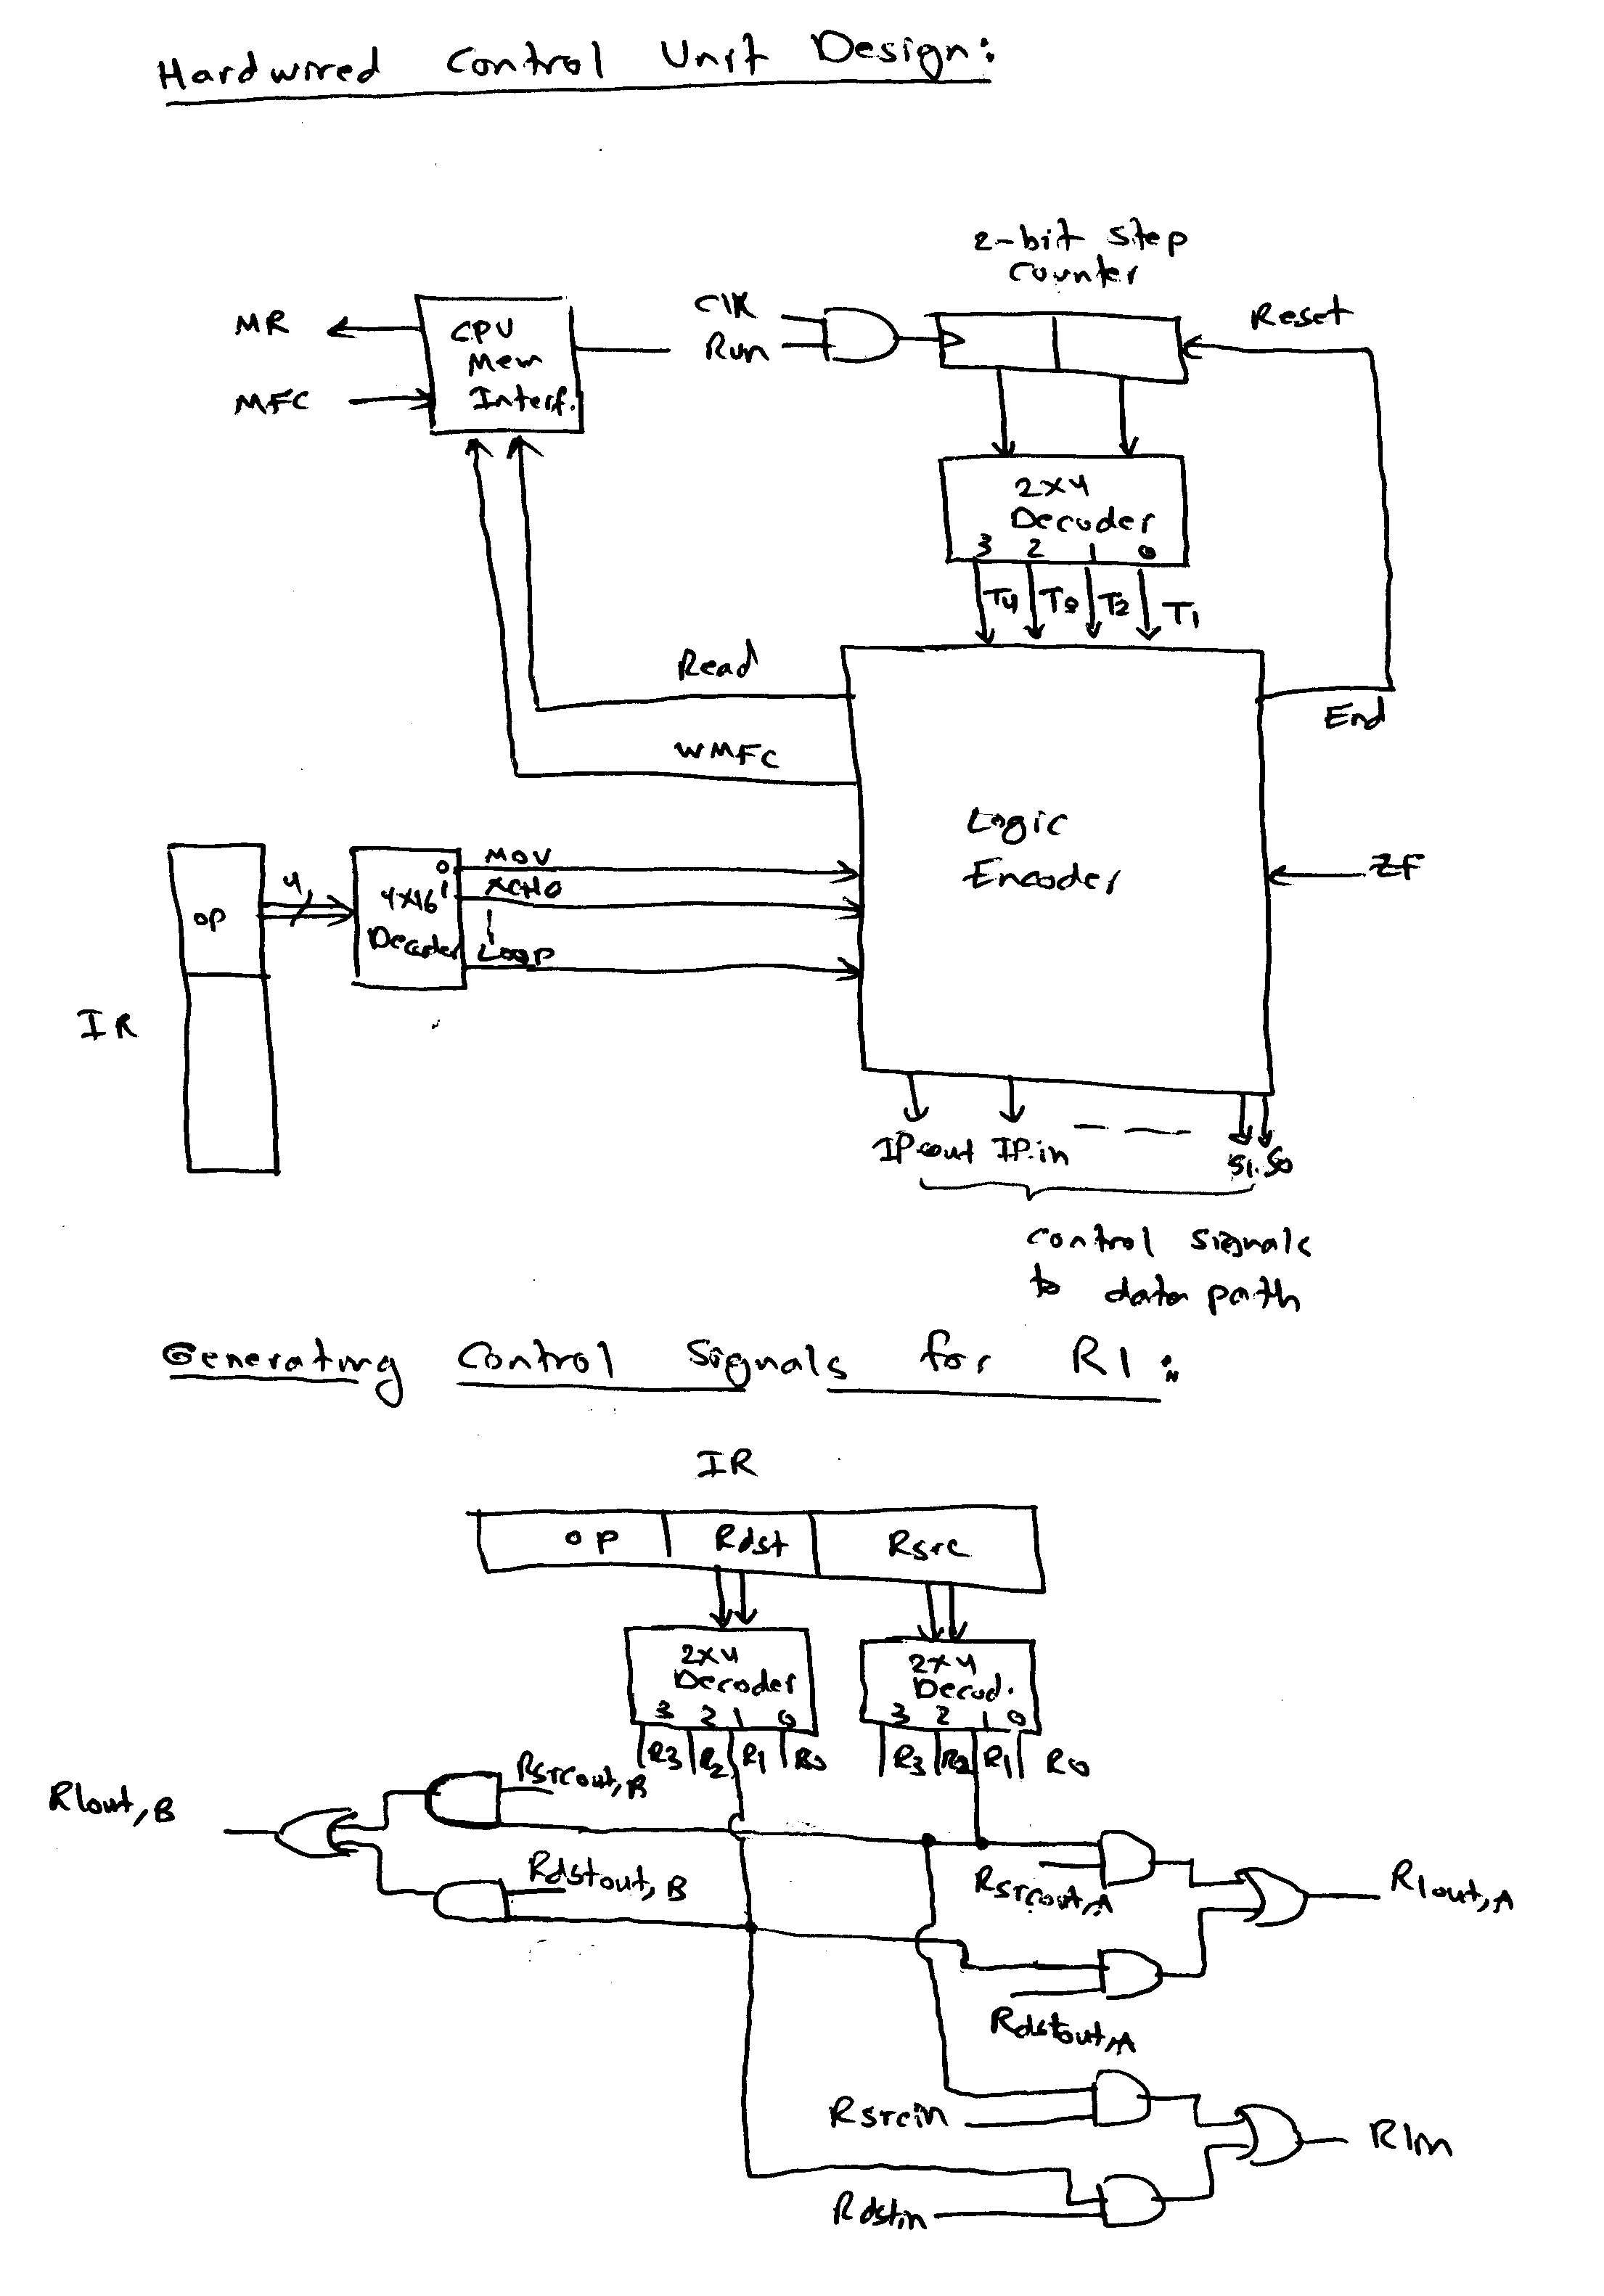 Hardwired Control Unit Design:
2-bit step
counter
MR
MFC
CPU
Mem
Interf.
Clk
Run
Reset
2x4
Decoder
3 2 1 0
T4 T3 T2 T1
Read
WMFC
End
Logic
Encoder
ZF
IR
op
4
4x16
Decoder
0
1
MOV
XCHG
Loop
IPout IPin
S1 S0
control signals
to data path
Generating Control Signals for R1:
IR
op Rdst Rsrc
2x4
Decoder
3 2 1 0
R3 R2 R1 R0
2x4
Decod.
3 2 1 0
R3 R2 R1 R0
R1out,B
Rsrcout,B
Rdstout,B
Rsrcout,A
R1out,A
Rdstout,A
Rsrcin
R1in
Rdstin